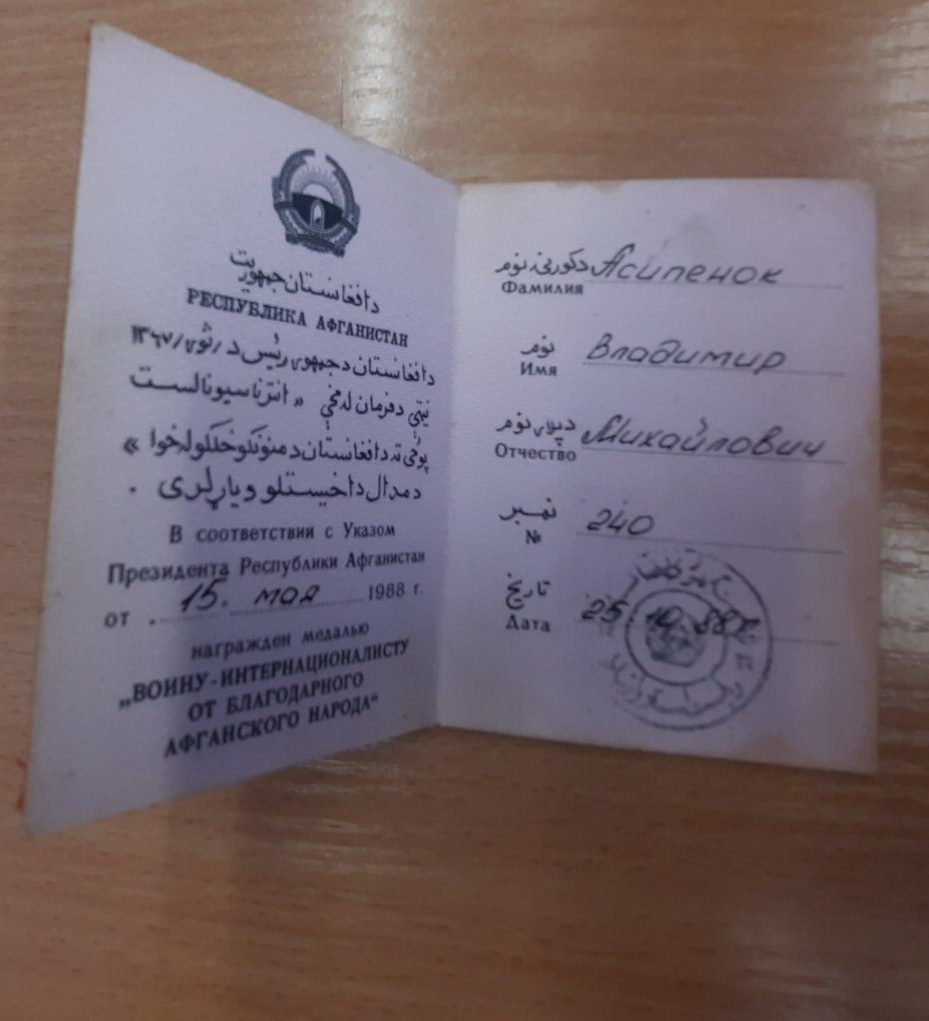 د افغانستان جمهوریت
РЕСПУБЛИКА АФГАНИСТАН
د افغانستان د جمهوری رئیس د /ثور/ ۱۳۶۷
نیټې د فرمان له مخې » انترناسیونالست
پوځی ته د افغانستان د منونکو خلکو له خوا »
د مدال د اخیستلو ویاړ لری .
В соответствии с Указом
Президента Республики Афганистан
от . 15. мая 1988 г.
награжден медалью
„ВОИНУ-ИНТЕРНАЦИОНАЛИСТУ
ОТ БЛАГОДАРНОГО
АФГАНСКОГО НАРОДА“
د کورنۍ نوم Асипенок
Фамилия
نوم Владимир
Имя
د پلار نوم Михайлович
Отчество
نمبر 240
№
تاریخ 25 10 88г.
Дата